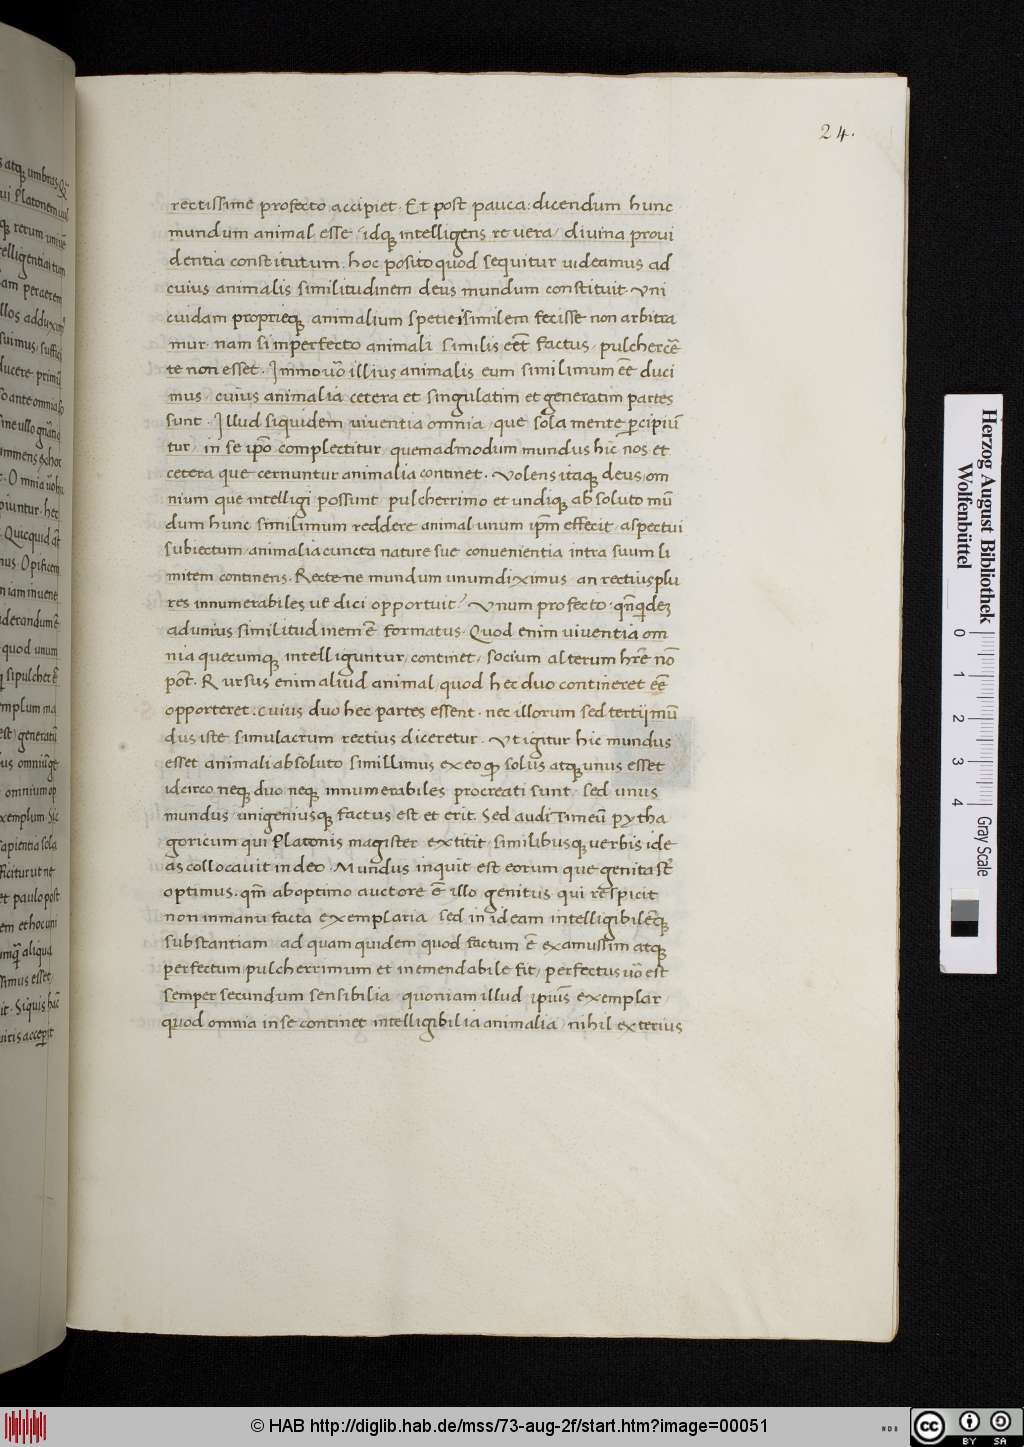 24.
rectissime profecto accipiet. Et post pauca: dicendum hunc
mundum animal esse / idq, intelligens re vera / divina provi
dentia constitutum. hoc posito quod sequitur uideamus ad
cuius animalis similitudinem deus mundum constituit. Vni
cuidam proprieq, animalium spetie similem fecisse non arbitra
mur. nam si imperfecto animali similis eēt factus / pulchercē
te non esset. Immo uō illius animalis eum similimum eē duci
mus / cuius animalia cetera et singulatim et generatim partes
sunt. Illud siquidem viventia omnia / que sola mente ꝑcipiū
tur / in se ipō complectitur / quemadmodum mundus hic nos et
cetera que cernuntur animalia continet. Volens itaq, deus om
nium que intelligi possunt pulcherrimo et undiq, absoluto mū
dum hunc similimum reddere animal unum ip̄m effecit / aspectui
subiectum / animalia cuncta nature sue convenientia intra suum li
mitem continens. Recte ne mundum unum diximus / an rectius plu
res innumerabiles ue dici opportuit? Vnum profecto. qn̄qdeʒ
ad unius similitudinem ē formatus. Quod enim viventia om
nia quecumq, intelliguntur / continet / socium alterum hr̄e nō
pōt. Rursus enim aliud animal quod hec duo contineret eē
opporteret. cuius duo hec partes essent. nec illorum sed tertij mū
dus iste simulacrum rectius diceretur. Vt igitur hic mundus
esset animali absoluto simillimus ex eo ꝙ solus atq, unus esset
idcirco neq, duo neq, innumerabiles procreati sunt / sed unus
mundus / unigeniusq, factus est et erit. Sed audi Timeū pytha
goricum qui Platonis magister extitit / similibusq, verbis ide
as collocavit in deo. Mundus inquit est eorum que genita st̄
optimus. qm̄ ab optimo auctore ē illo genitus qui respicit
non inmanu facta exemplaria sed in ideam intelligibilēq,
substantiam / ad quam quidem quod factum ē examussim atq,
perfectum / pulcherrimum et inemendabile fit / perfectus uō est
semper secundum sensibilia / quoniam illud ipius exemplar /
quod omnia in se continet intelligibilia animalia / nihil exterius
Herzog August Bibliothek
Wolfenbüttel
0 1 2 3 4
Gray Scale
© HAB http://diglib.hab.de/mss/73-aug-2f/start.htm?image=00051
WDB
cc BY SA